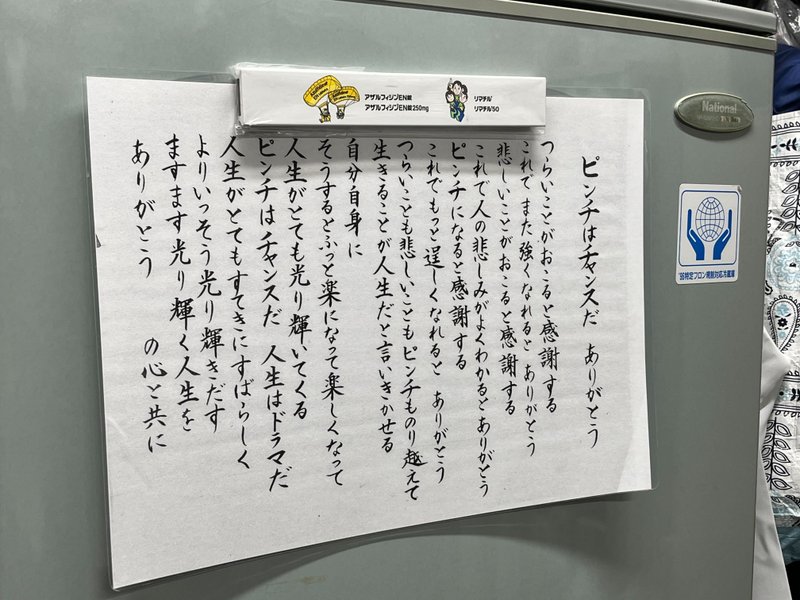 アザルフィジンEN錠
アザルフィジンEN錠250mg
リマチル
リマチル50
National
ピンチはチャンスだ ありがとう
つらいことがおこると感謝する
これでまた強くなれると ありがとう
悲しいことがおこると感謝する
これで人の悲しみがよくわかると ありがとう
ピンチになると感謝する
これでもっと逞しくなれると ありがとう
つらいことも悲しいこともピンチものり越えて
生きることが人生だと言いきかせる
自分自身に
そうするとふっと楽になって楽しくなって
人生がとても光り輝いてくる
ピンチはチャンスだ 人生はドラマだ
人生がとてもすてきにすばらしく
よりいっそう光り輝きだす
ますます光り輝く人生を
ありがとう の心と共に
'95特定フロン規制対応冷蔵庫